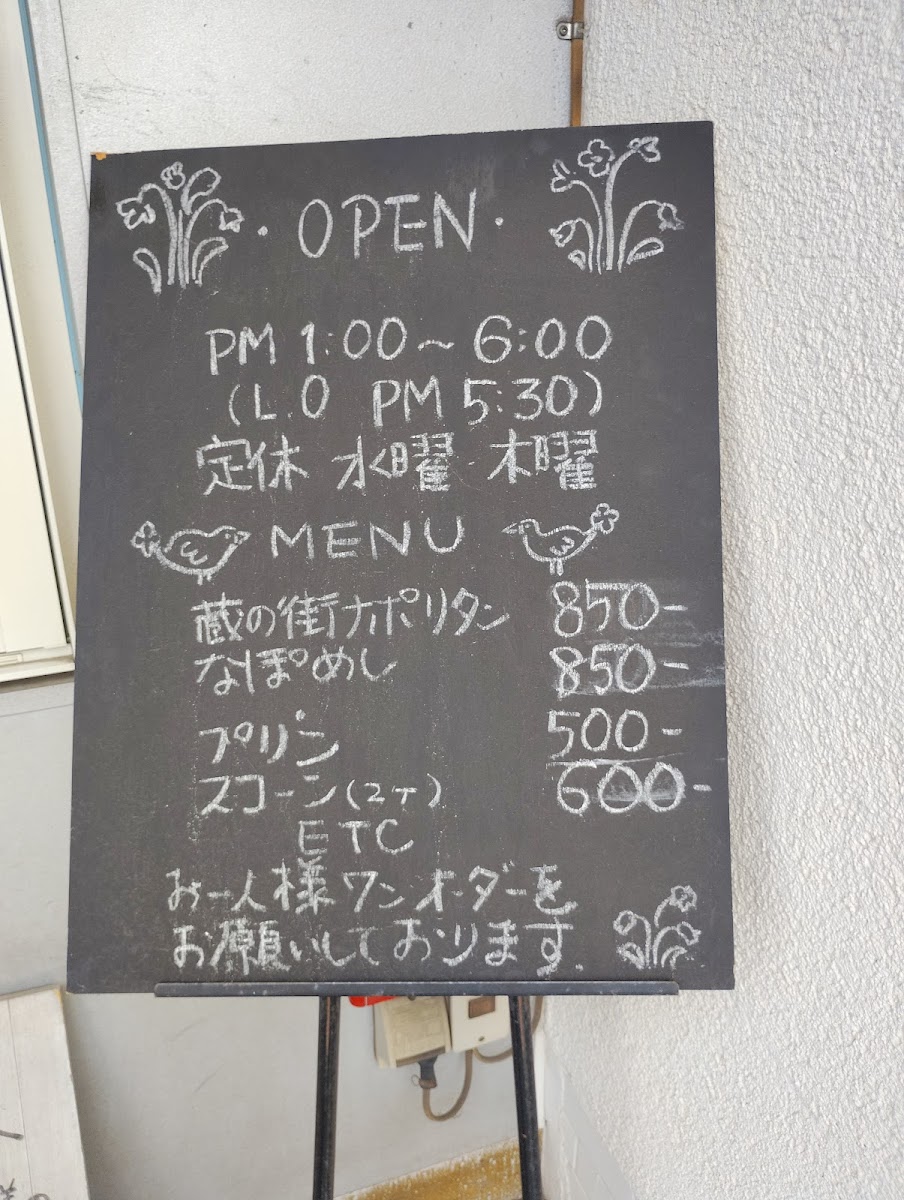 ・OPEN・
PM 1:00~6:00
(L.O PM 5:30)
定休 水曜 木曜
MENU
蔵の街ナポリタン 850-
なぽめし 850-
プリン 500-
スコーン(2ヶ) 600-
ETC
お一人様ワンオーダーを
お願いしております.